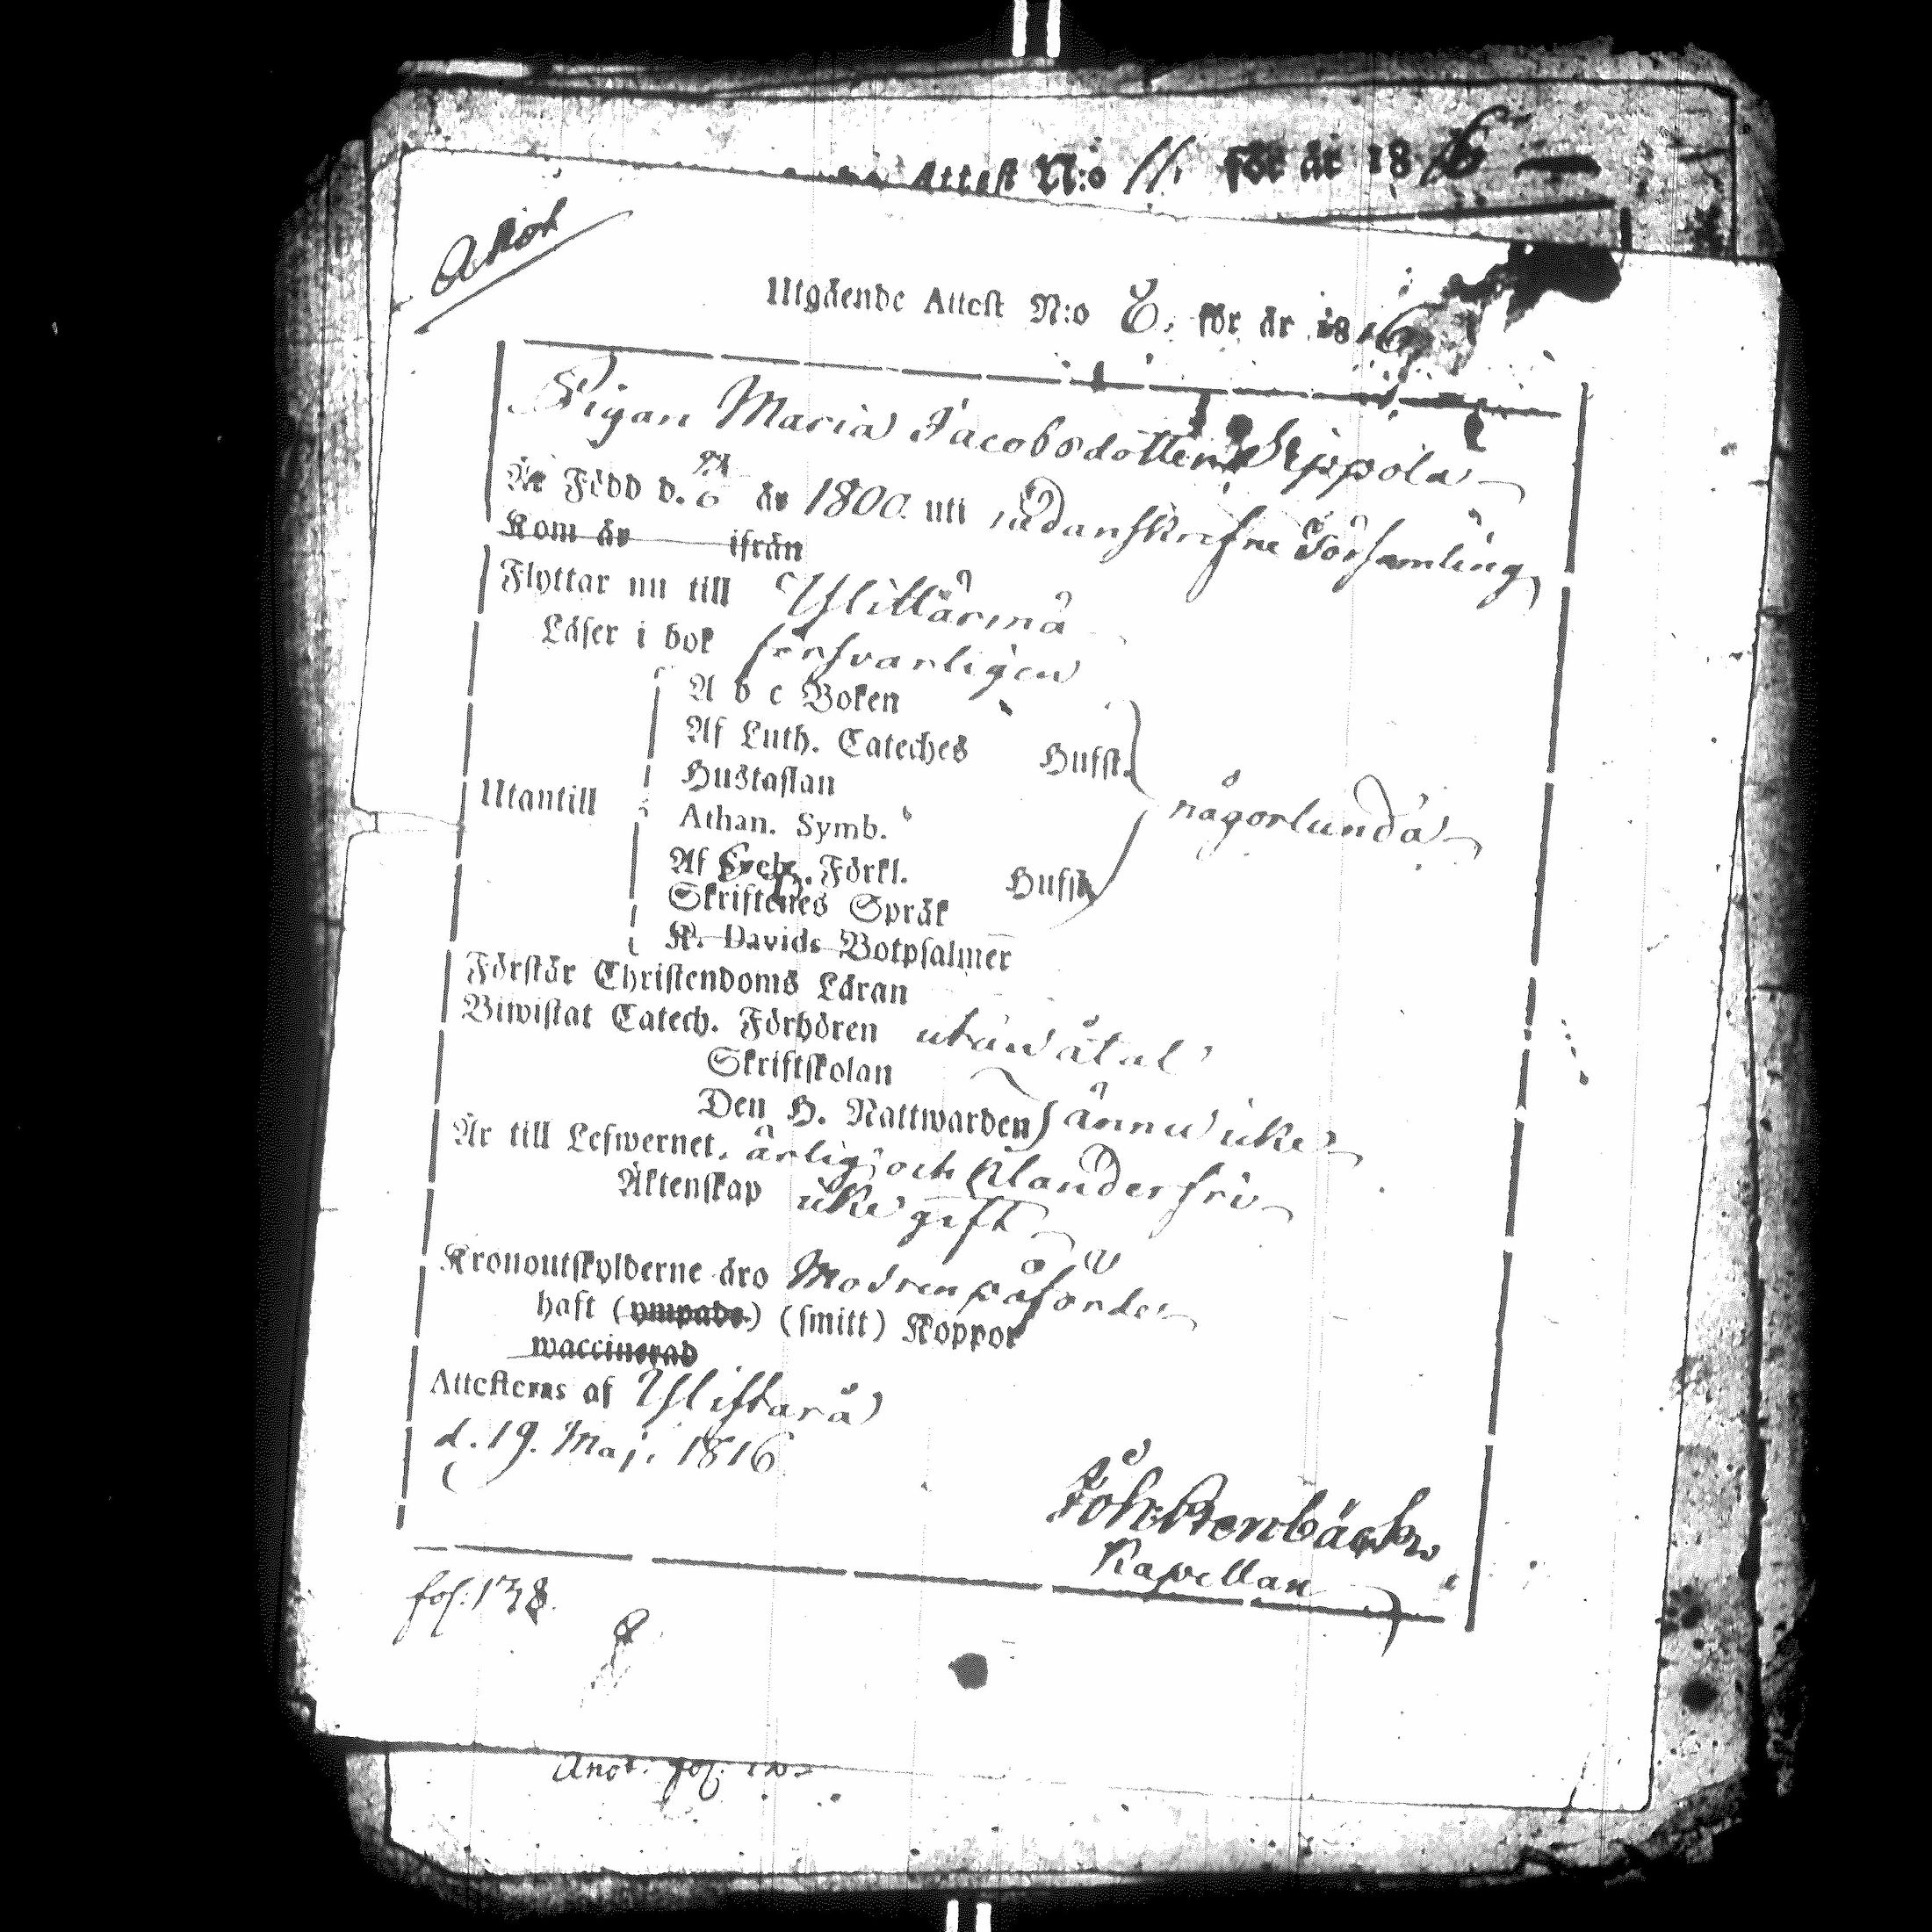 Attest N:o 11. för år 1816
Utgående Attest N:o 8. för år 1816
Pigan Maria Jacobsdotter Seppola
Är Född d. år 1800 uti nådanskrefne Församling
Kom år ifrån
Flyttar nu till Ylihärmä
Läser i bok försvarligen
A b c Boken
Af Luth. Cateches Hufst.
Hustaflan
Utantill
Athan. Symb.
någorlunda
Af Förkl. Hufst.
Skriftenes Språk
K. Davids Botpsalmer
Förstår Christendoms Läran
Biwistat Catech. Förhören utan åtal
Skriftskolan
Den H. Nattwarden ännu icke
Är till Lefwernet ärlig och klanderfri
Äktenskap icke gift
Kronoutskylderne äro Modren påförde
haft (ympade) (smitt) Koppor
waccinerad
Attesteras af Ylistaro
d. 19. Maj. 1816
Joh: Stenbäck
Kapellan
fol. 138
Anot. fol.